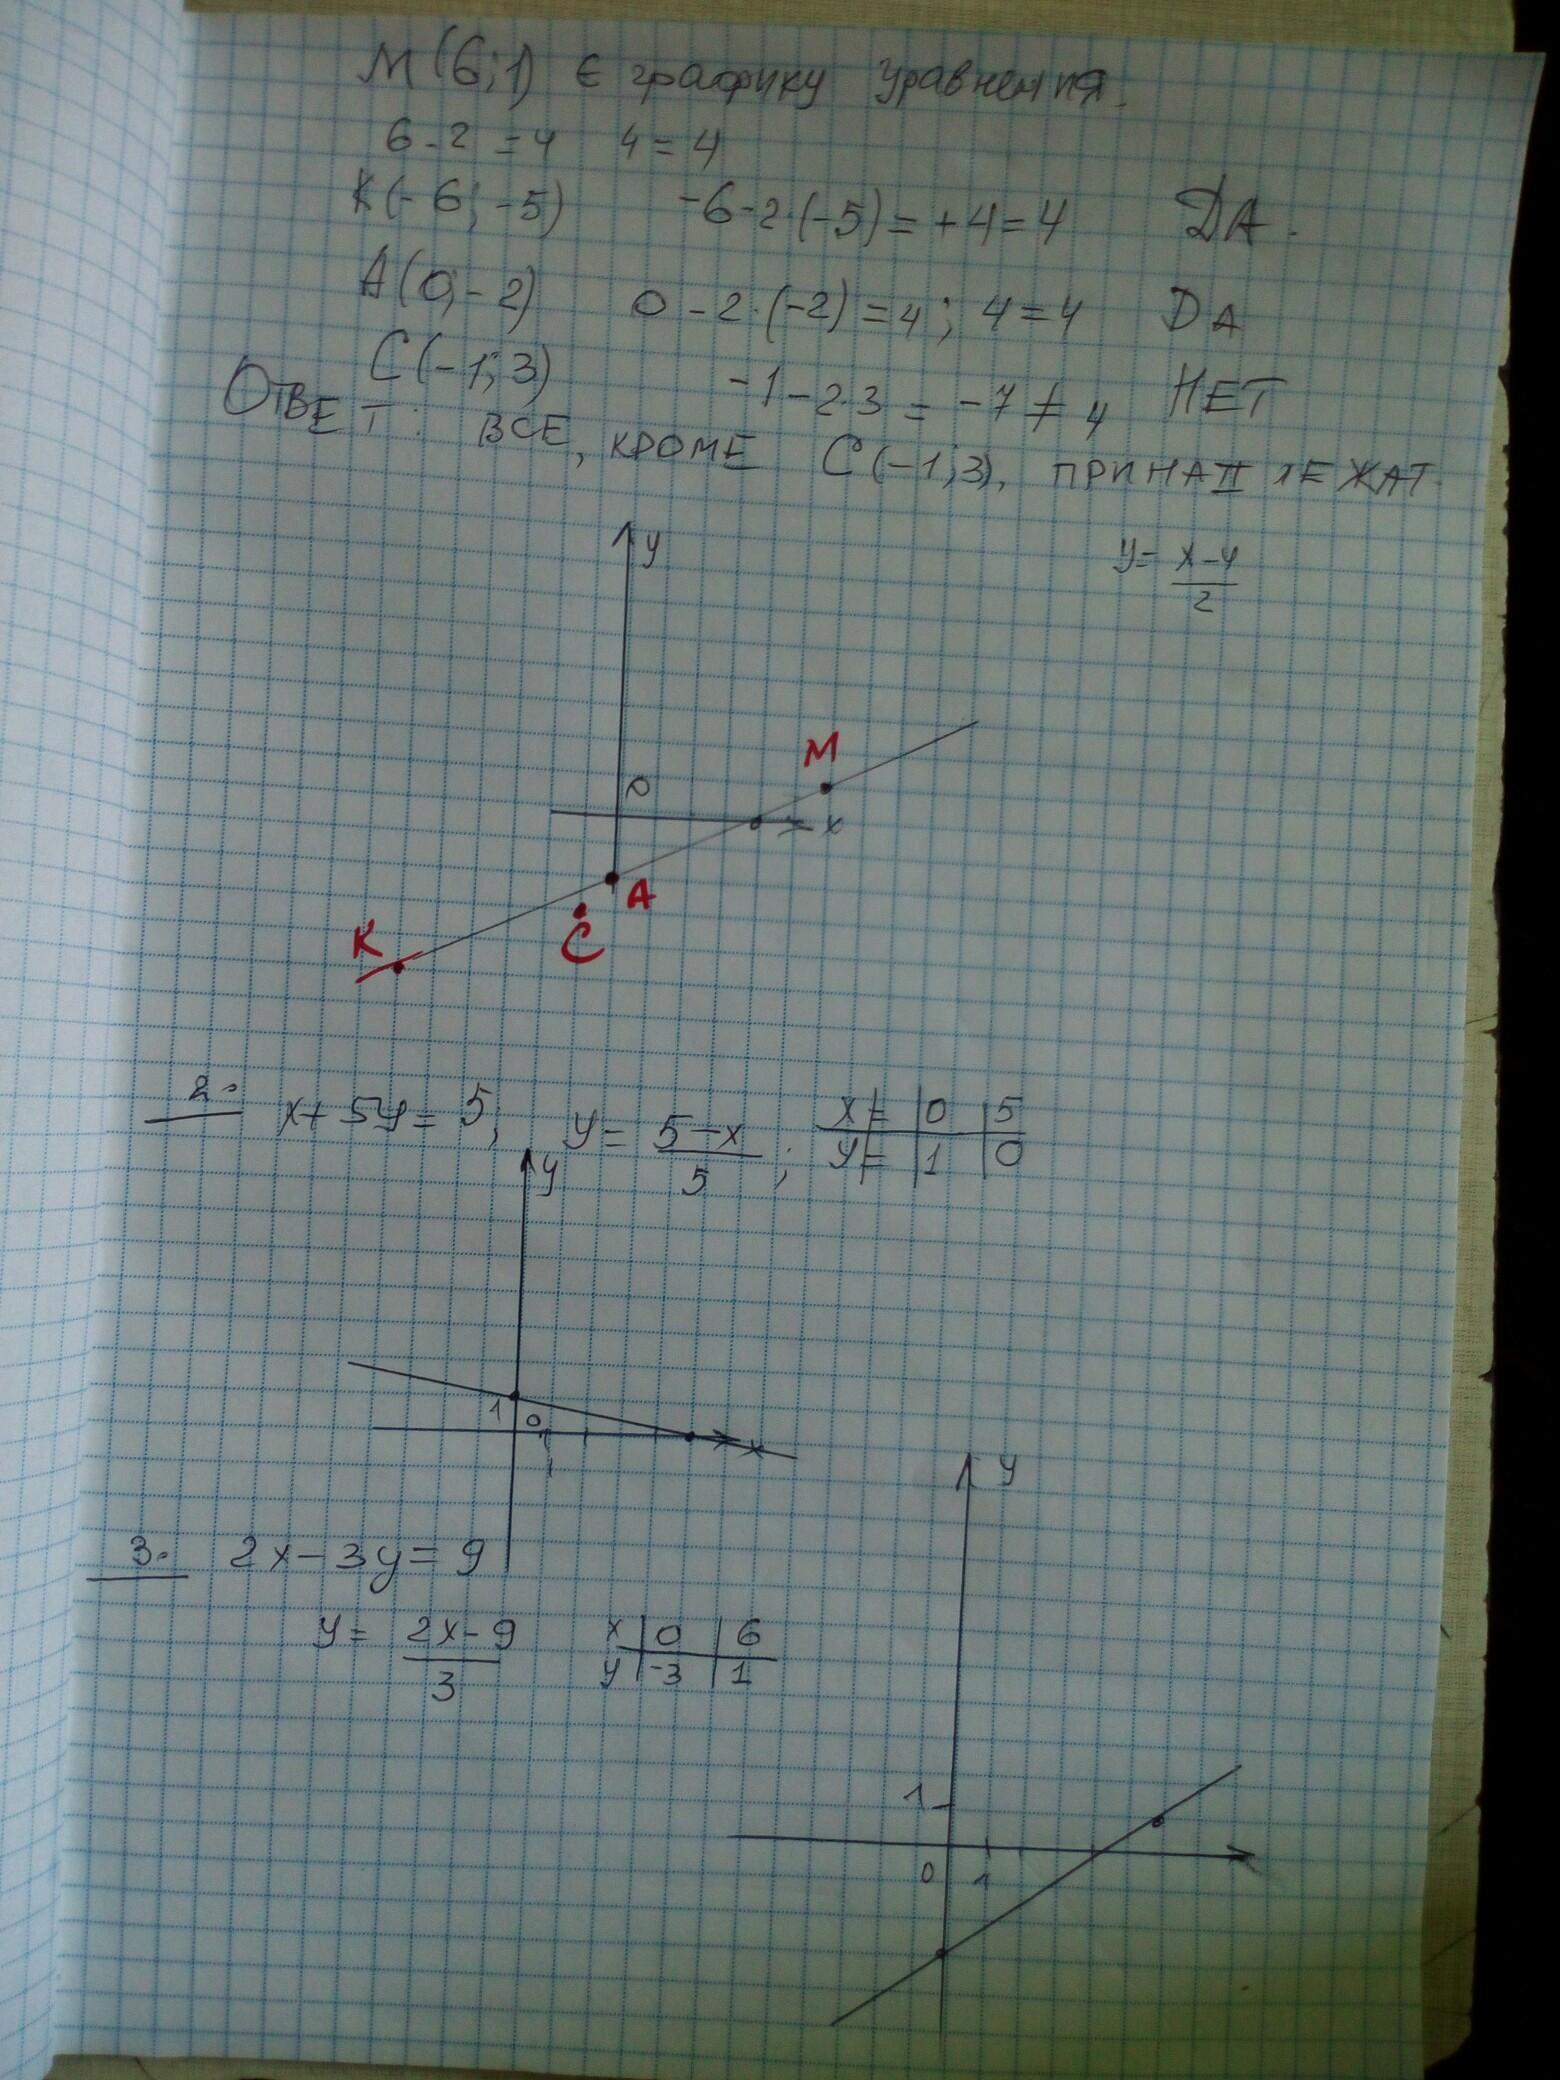 М(6;1) є графику уравнения.
6-2 =4 4=4
К(-6; -5) -6-2·(-5)= +4=4 DA.
А(0;-2) 0-2·(-2)=4; 4=4 DA
С(-1;3) -1-2·3 = -7≠4 НЕТ
ОТВЕТ: ВСЕ, КРОМЕ С(-1;3), ПРИНАДЛЕЖАТ.
y
y= x-4
2
M
0
x
A
K
C
2. x+5y=5; y= 5-x ; x= | 0 | 5
5 y= | 1 | 0
y
1 0
x
1
y
3. 2x-3y=9
y= 2x-9 x | 0 | 6
3 y | -3 | 1
1
0 1